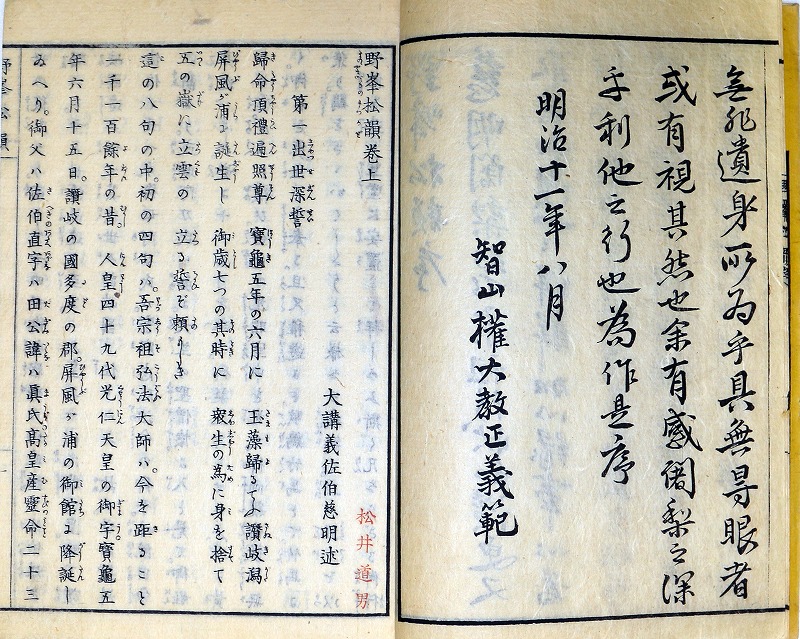 無非遺身所為乎具無导眼者
或有視其然也余有感闍梨之深
乎利他之行也為作是序
明治十一年八月
智山權大教正義範
野峯松韻巻上
大講義佐伯慈明述
松井道男
第一出世深誓
歸命頂禮遍照尊 寶龜五年の六月に 玉藻歸るてふ讃岐潟
屏風が浦に誕生し 御歳七つの其時に 衆生の為に身を捨て
五の嶽に立雲の 立る誓ぞ頼しき
這の八句の中。初の四句ハ。吾宗祖弘法大師ハ。今を距ること
一千一百餘年の昔。人皇四十九代光仁天皇の御宇寶龜五
年六月十五日。讃岐の國多度の郡。屏風ヶ浦の御館に降誕し
ゐへり。御父ハ佐伯直字ハ田公諱ハ眞氏高皇産靈命二十三
野峯松韻